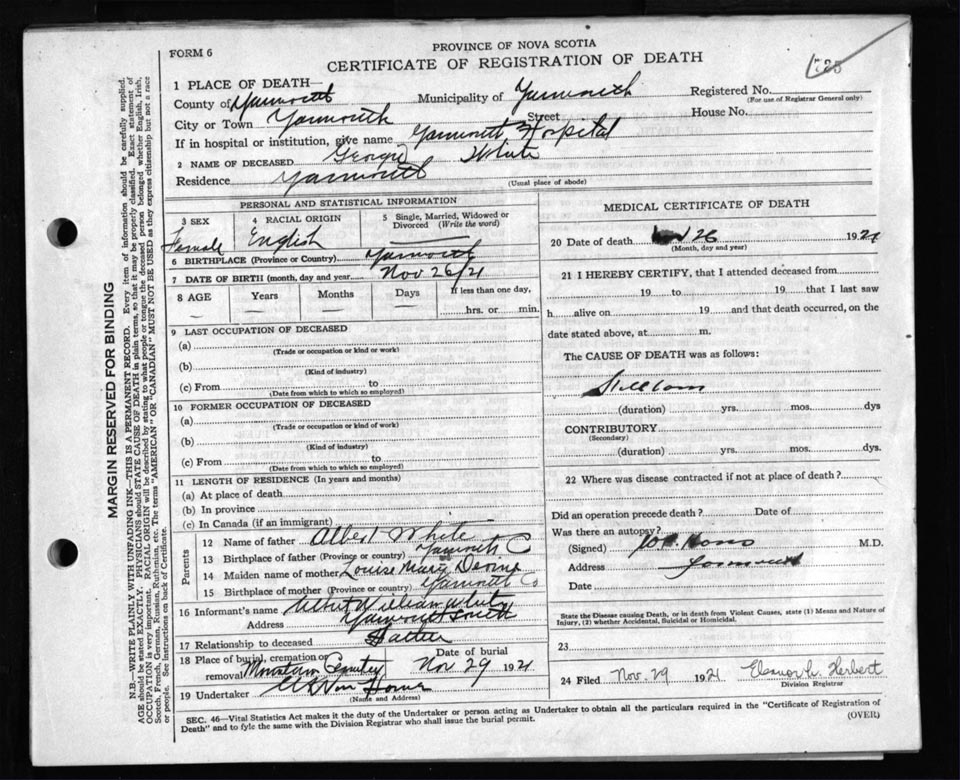 FORM 6
PROVINCE OF NOVA SCOTIA
CERTIFICATE OF REGISTRATION OF DEATH
1 PLACE OF DEATH—
County of Yarmouth Municipality of Yarmouth Registered No.
(For use of Registrar General only)
City or Town Yarmouth Street House No.
If in hospital or institution, give name Yarmouth Hospital
2 NAME OF DECEASED White
Residence Yarmouth
(Usual place of abode)
PERSONAL AND STATISTICAL INFORMATION
3 SEX 4 RACIAL ORIGIN 5 Single, Married, Widowed or Divorced (Write the word)
Female English
6 BIRTHPLACE (Province or Country) Yarmouth
7 DATE OF BIRTH (month, day and year) Nov 26/21
8 AGE Years Months Days If less than one day,
hrs. or min.
9 LAST OCCUPATION OF DECEASED
(a)
(Trade or occupation or kind or work)
(b)
(Kind of industry)
(c) From to
(Date from which to which so employed)
10 FORMER OCCUPATION OF DECEASED
(a)
(Trade or occupation or kind or work)
(b)
(Kind of industry)
(c) From to
(Date from which to which so employed)
11 LENGTH OF RESIDENCE (In years and months)
(a) At place of death
(b) In province
(c) In Canada (if an immigrant)
Parents
12 Name of father Albert White
13 Birthplace of father (Province or country) Yarmouth C
14 Maiden name of mother Louise Marie
15 Birthplace of mother (Province or country) Yarmouth Co
16 Informant's name Albert William White
Address Yarmouth South
17 Relationship to deceased Father
18 Place of burial, cremation or removal Mountain Cemetey Date of burial Nov 29 1921
19 Undertaker Van Horne
(Name and Address)
MEDICAL CERTIFICATE OF DEATH
20 Date of death 26 1921
(Month, day and year)
21 I HEREBY CERTIFY, that I attended deceased from
19 to 19 that I last saw
h alive on 19 and that death occurred, on the
date stated above, at m.
The CAUSE OF DEATH was as follows:
Stillborn
(duration) yrs. mos. dys
CONTRIBUTORY
(Secondary)
(duration) yrs. mos. dys.
22 Where was disease contracted if not at place of death?
Did an operation precede death? Date of
Was there an autopsy?
(Signed) M.D.
Address Yarmouth
Date
State the Disease causing Death, or in death from Violent Causes, state (1) Means and Nature of Injury, (2) whether Accidental, Suicidal or Homicidal.
23
24 Filed Nov. 29 1921 Herbert
Division Registrar
SEC. 46—Vital Statistics Act makes it the duty of the Undertaker or person acting as Undertaker to obtain all the particulars required in the "Certificate of Registration of
Death" and to fyle the same with the Division Registrar who shall issue the burial permit.
(OVER)
MARGIN RESERVED FOR BINDING
N.B.—WRITE PLAINLY, WITH UNFADING INK—THIS IS A PERMANENT RECORD. Every item of information should be carefully supplied.
AGE should be stated EXACTLY. PHYSICIANS should STATE CAUSE OF DEATH in plain terms, so that it may be properly classified. Exact statement of
OCCUPATION is very important. RACIAL ORIGIN will be described by stating to what people or tongue the deceased person belonged whether English, Irish,
Scotch, French, German, Russian, Ruthenian, etc. The terms "AMERICAN" OR "CANADIAN" MUST NOT BE USED as they express citizenship but not a race
or people. See instructions on back of Certificate.